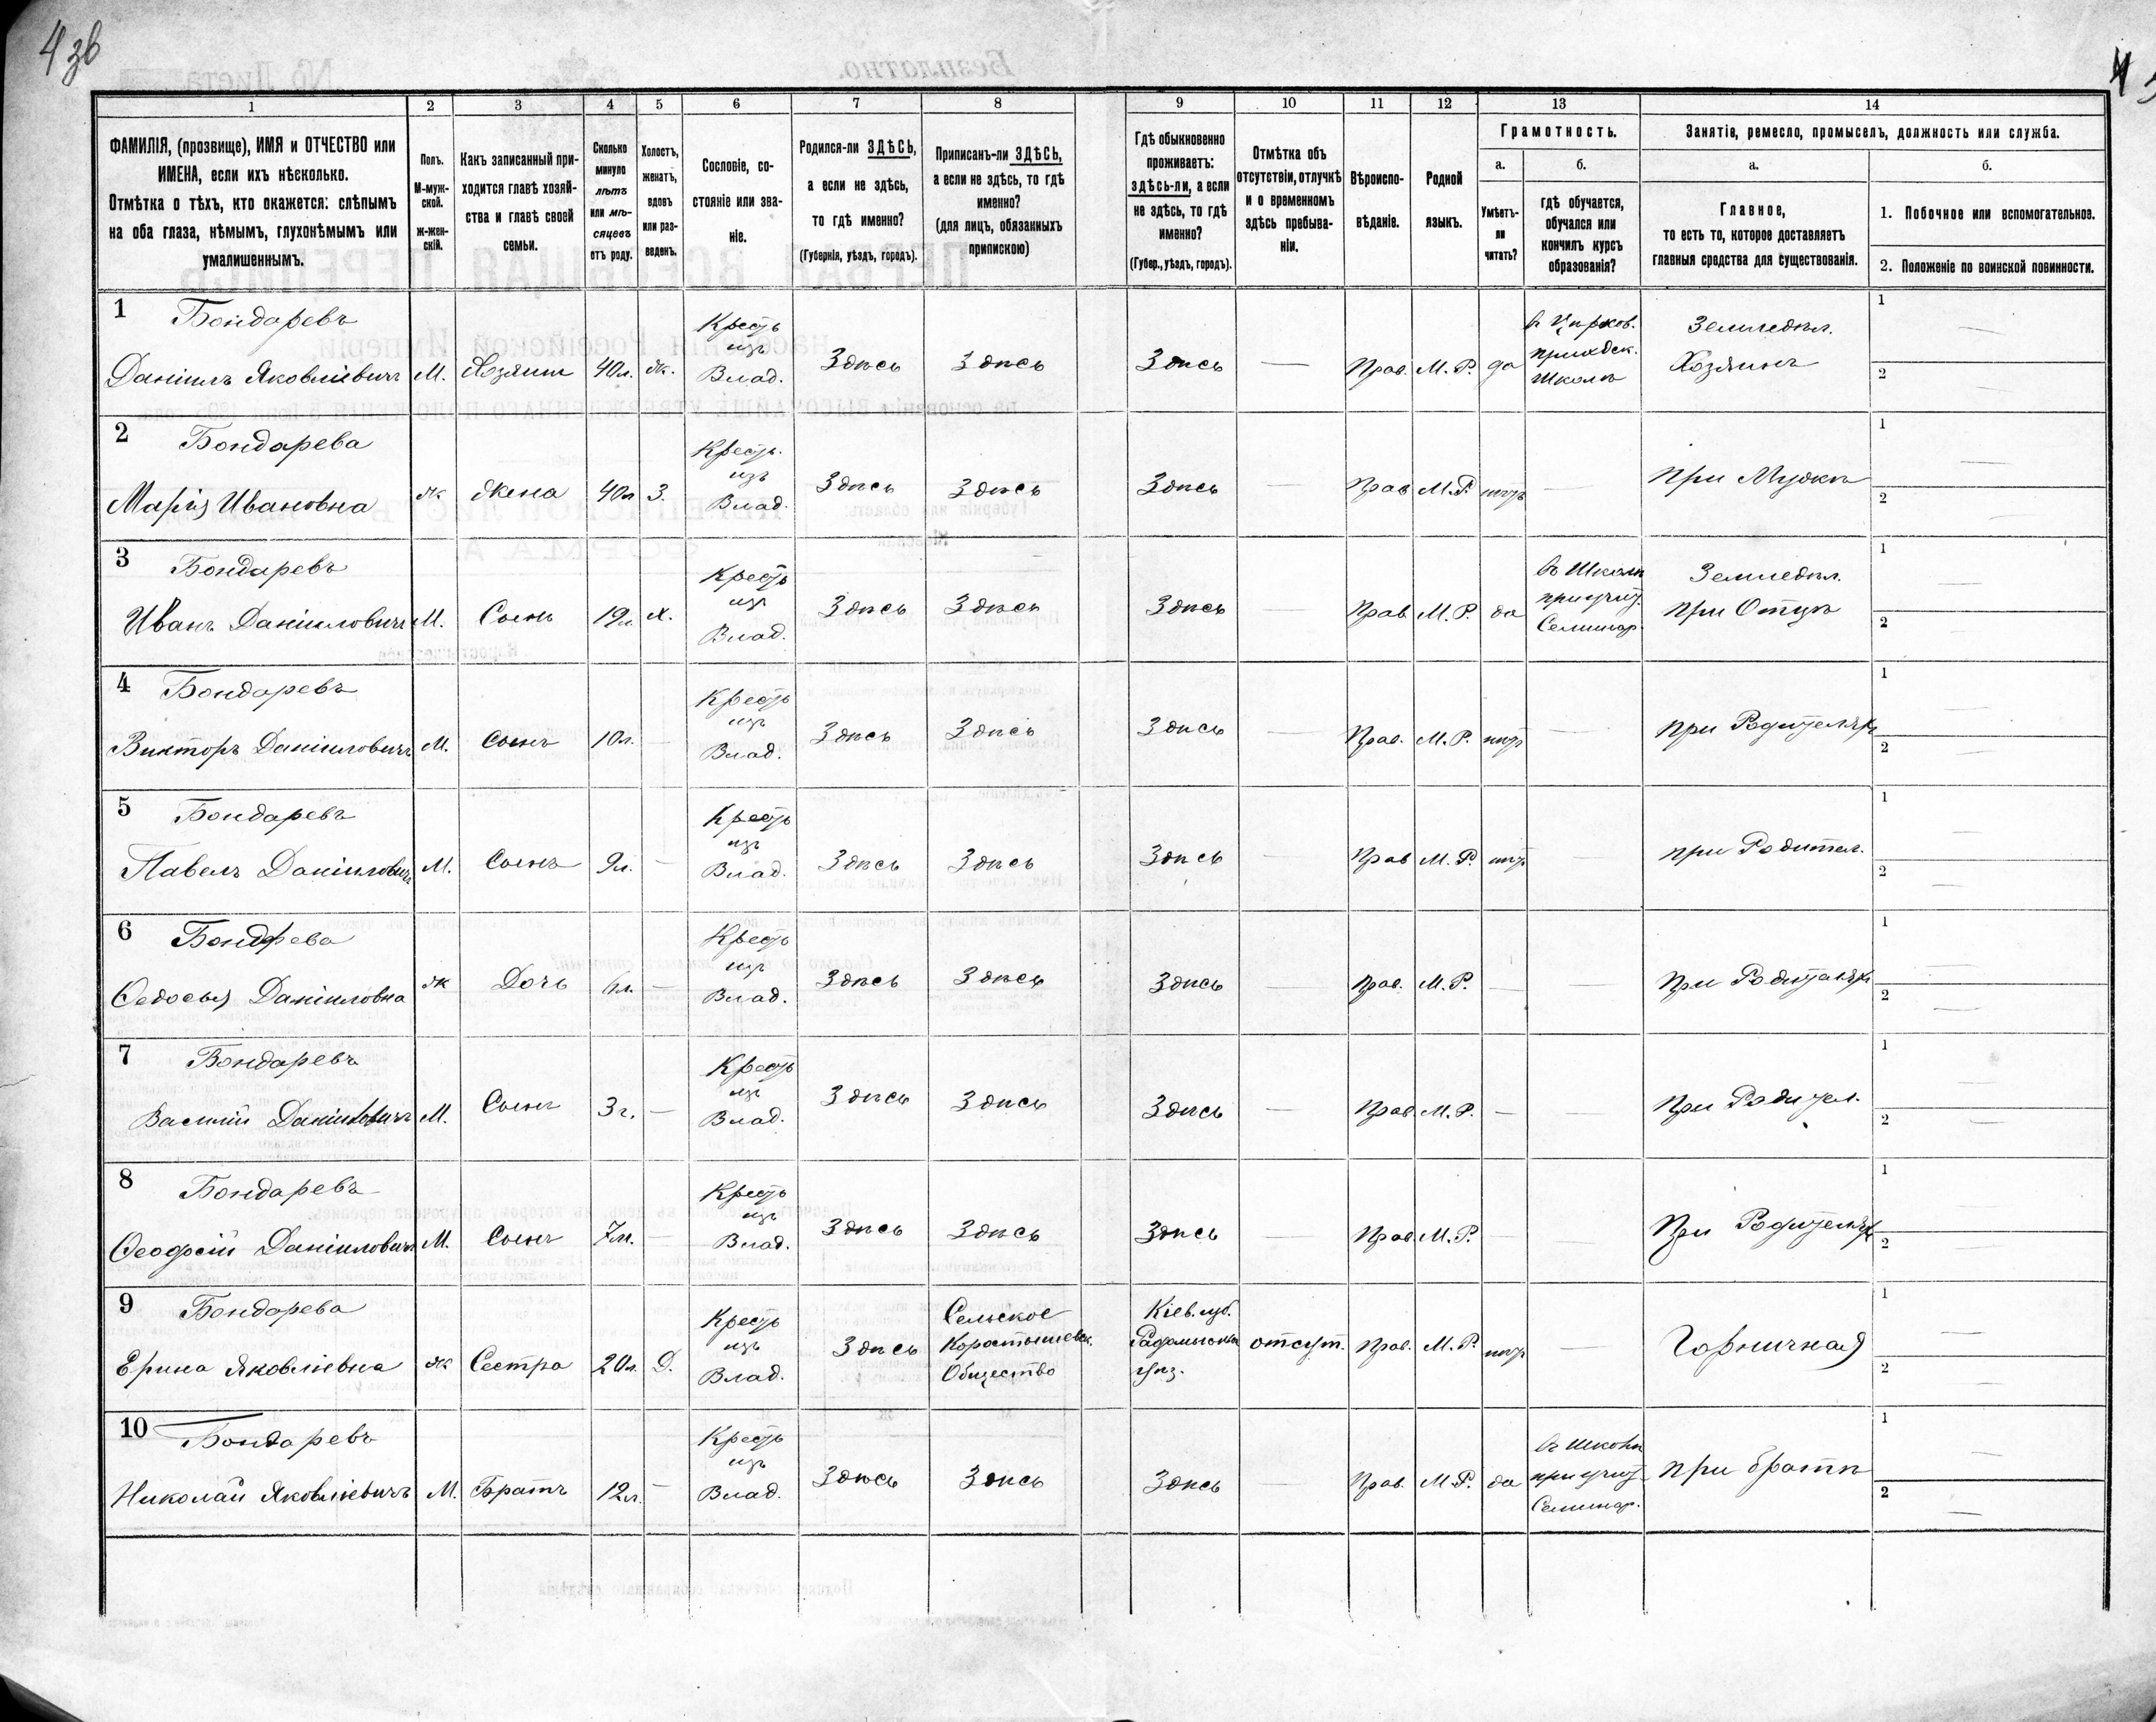 4 зв
1 2 3 4 5 6 7 8 9 10 11 12 13 14
ФАМИЛІЯ, (прозвище), ИМЯ и ОТЧЕСТВО или
ИМЕНА, если ихъ нѣсколько.
Отмѣтка о тѣхъ, кто окажется: слѣпымъ
на оба глаза, нѣмымъ, глухонѣмымъ или
умалишеннымъ.
Полъ.
М-муж-
ской.
ж-жен-
скій.
Какъ записанный при-
ходится главѣ хозяй-
ства и главѣ своей
семьи.
Сколько
минуло
лѣтъ
или мѣ-
сяцевъ
отъ роду.
Холостъ,
женатъ,
вдовъ
или раз-
веденъ.
Сословіе, со-
стояніе или зва-
ніе.
Родился-ли ЗДѢСЬ,
а если не здѣсь,
то гдѣ именно?
(Губернія, уѣздъ, городъ).
Приписанъ-ли ЗДѢСЬ,
а если не здѣсь, то гдѣ
именно?
(для лицъ, обязанныхъ
припискою)
Гдѣ обыкновенно
проживаетъ:
здѣсь-ли, а если
не здѣсь, то гдѣ
именно?
(Губер., уѣздъ, городъ).
Отмѣтка объ
отсутствіи, отлучкѣ
и о временномъ
здѣсь пребыва-
ніи.
Вѣроиспо-
вѣданіе.
Родной
языкъ.
Грамотность.
а.
Умѣетъ-
ли
читать?
б.
гдѣ обучается,
обучался или
кончилъ курсъ
образованія?
Занятіе, ремесло, промыселъ, должность или служба.
а.
Главное,
то есть то, которое доставляетъ
главныя средства для существованія.
б.
1. Побочное или вспомогательное.
2. Положеніе по воинской повинности.
1 Бондаревъ
Даніилъ Яковлевичъ М. Хозяинъ 40л. ж.
Кресть
изъ
Влад.
Здѣсь Здѣсь Здѣсь — Прав. М.Р. да
въ Церков.
приходск.
школѣ
Земледѣл.
Хозяинъ
1 —
2 —
2 Бондарева
Марія Ивановна ж Жена 40л З.
Кресть.
изъ
Влад.
Здѣсь Здѣсь Здѣсь — Прав М.Р. нѣтъ — при Мужѣ
1 —
2 —
3 Бондаревъ
Иванъ Данііловичъ М. Сынъ 19л. х.
Кресть
изъ
Влад.
Здѣсь Здѣсь Здѣсь — Прав М.Р. да
въ Школѣ
при учит.
Семинар.
Земледѣл.
при Отцѣ
1 —
2 —
4 Бондаревъ
Викторъ Данііловичъ М. Сынъ 10л. —
Кресть
изъ
Влад.
Здѣсь Здѣсь Здѣсь — Прав. М.Р. нѣтъ — при Родителяхъ
1 —
2 —
5 Бондаревъ
Павелъ Данііловичъ М. Сынъ 9л. —
Кресть
изъ
Влад.
Здѣсь Здѣсь Здѣсь — Прав М.Р. нѣтъ при Родител.
1 —
2 —
6 Бондарева
Ѳедосья Данііловна ж Дочь —
Кресть
изъ
Влад.
Здѣсь Здѣсь Здѣсь — Прав. М.Р. — — при Родителяхъ
1 —
2 —
7 Бондаревъ
Василій Данііловичъ М. Сынъ 3г. —
Кресть
изъ
Влад.
Здѣсь Здѣсь Здѣсь — Прав М.Р. — — при Родител.
1 —
2 —
8 Бондаревъ
Данііловичъ М. Сынъ 7м. —
Кресть
изъ
Влад.
Здѣсь Здѣсь Здѣсь — Прав. М.Р. — — При Родителяхъ
1 —
2 —
9 Бондарева
Ерина Яковлевна ж Сестра 20л. Д.
Кресть
изъ
Влад.
Здѣсь
Сельское
Коростышевск.
Общество
Кіев. губ.
Радомысль
уѣз.
отсут. Прав. М.Р. нѣтъ — Горничная
1 —
2 —
10 Бондаревъ
Николай Яковлевичъ М. Братъ 12л. —
Кресть
изъ
Влад.
Здѣсь Здѣсь Здѣсь Прав. М.Р. да
въ школѣ
при учит.
Семинар.
при братѣ
1 —
2 —